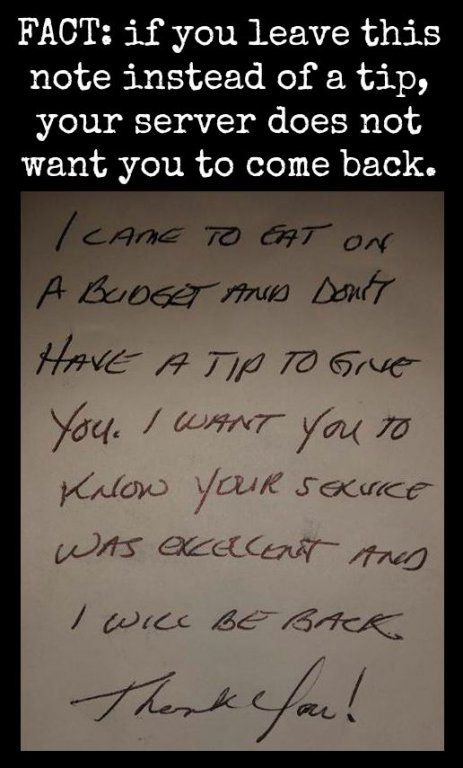 FACT: if you leave this
note instead of a tip,
your server does not
want you to come back.
I CAME TO EAT ON
A BUDGET AND DON'T
HAVE A TIP TO GIVE
YOU. I WANT YOU TO
KNOW YOUR SERVICE
WAS EXCELLENT AND
I WILL BE BACK.
Thank You!